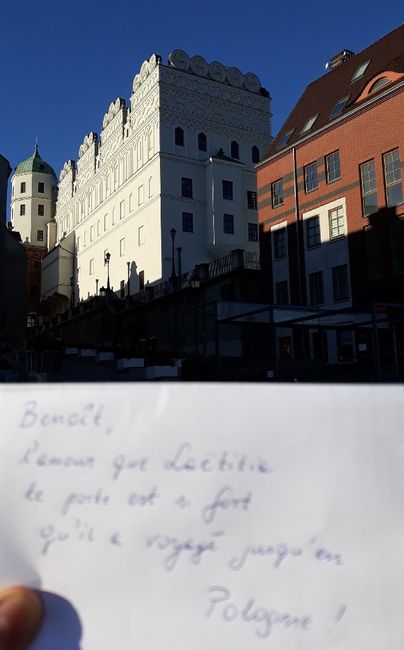 Benoît,
l'amour que Laëtitia
te porte est si fort
qu'il a voyagé jusqu'en
Pologne !